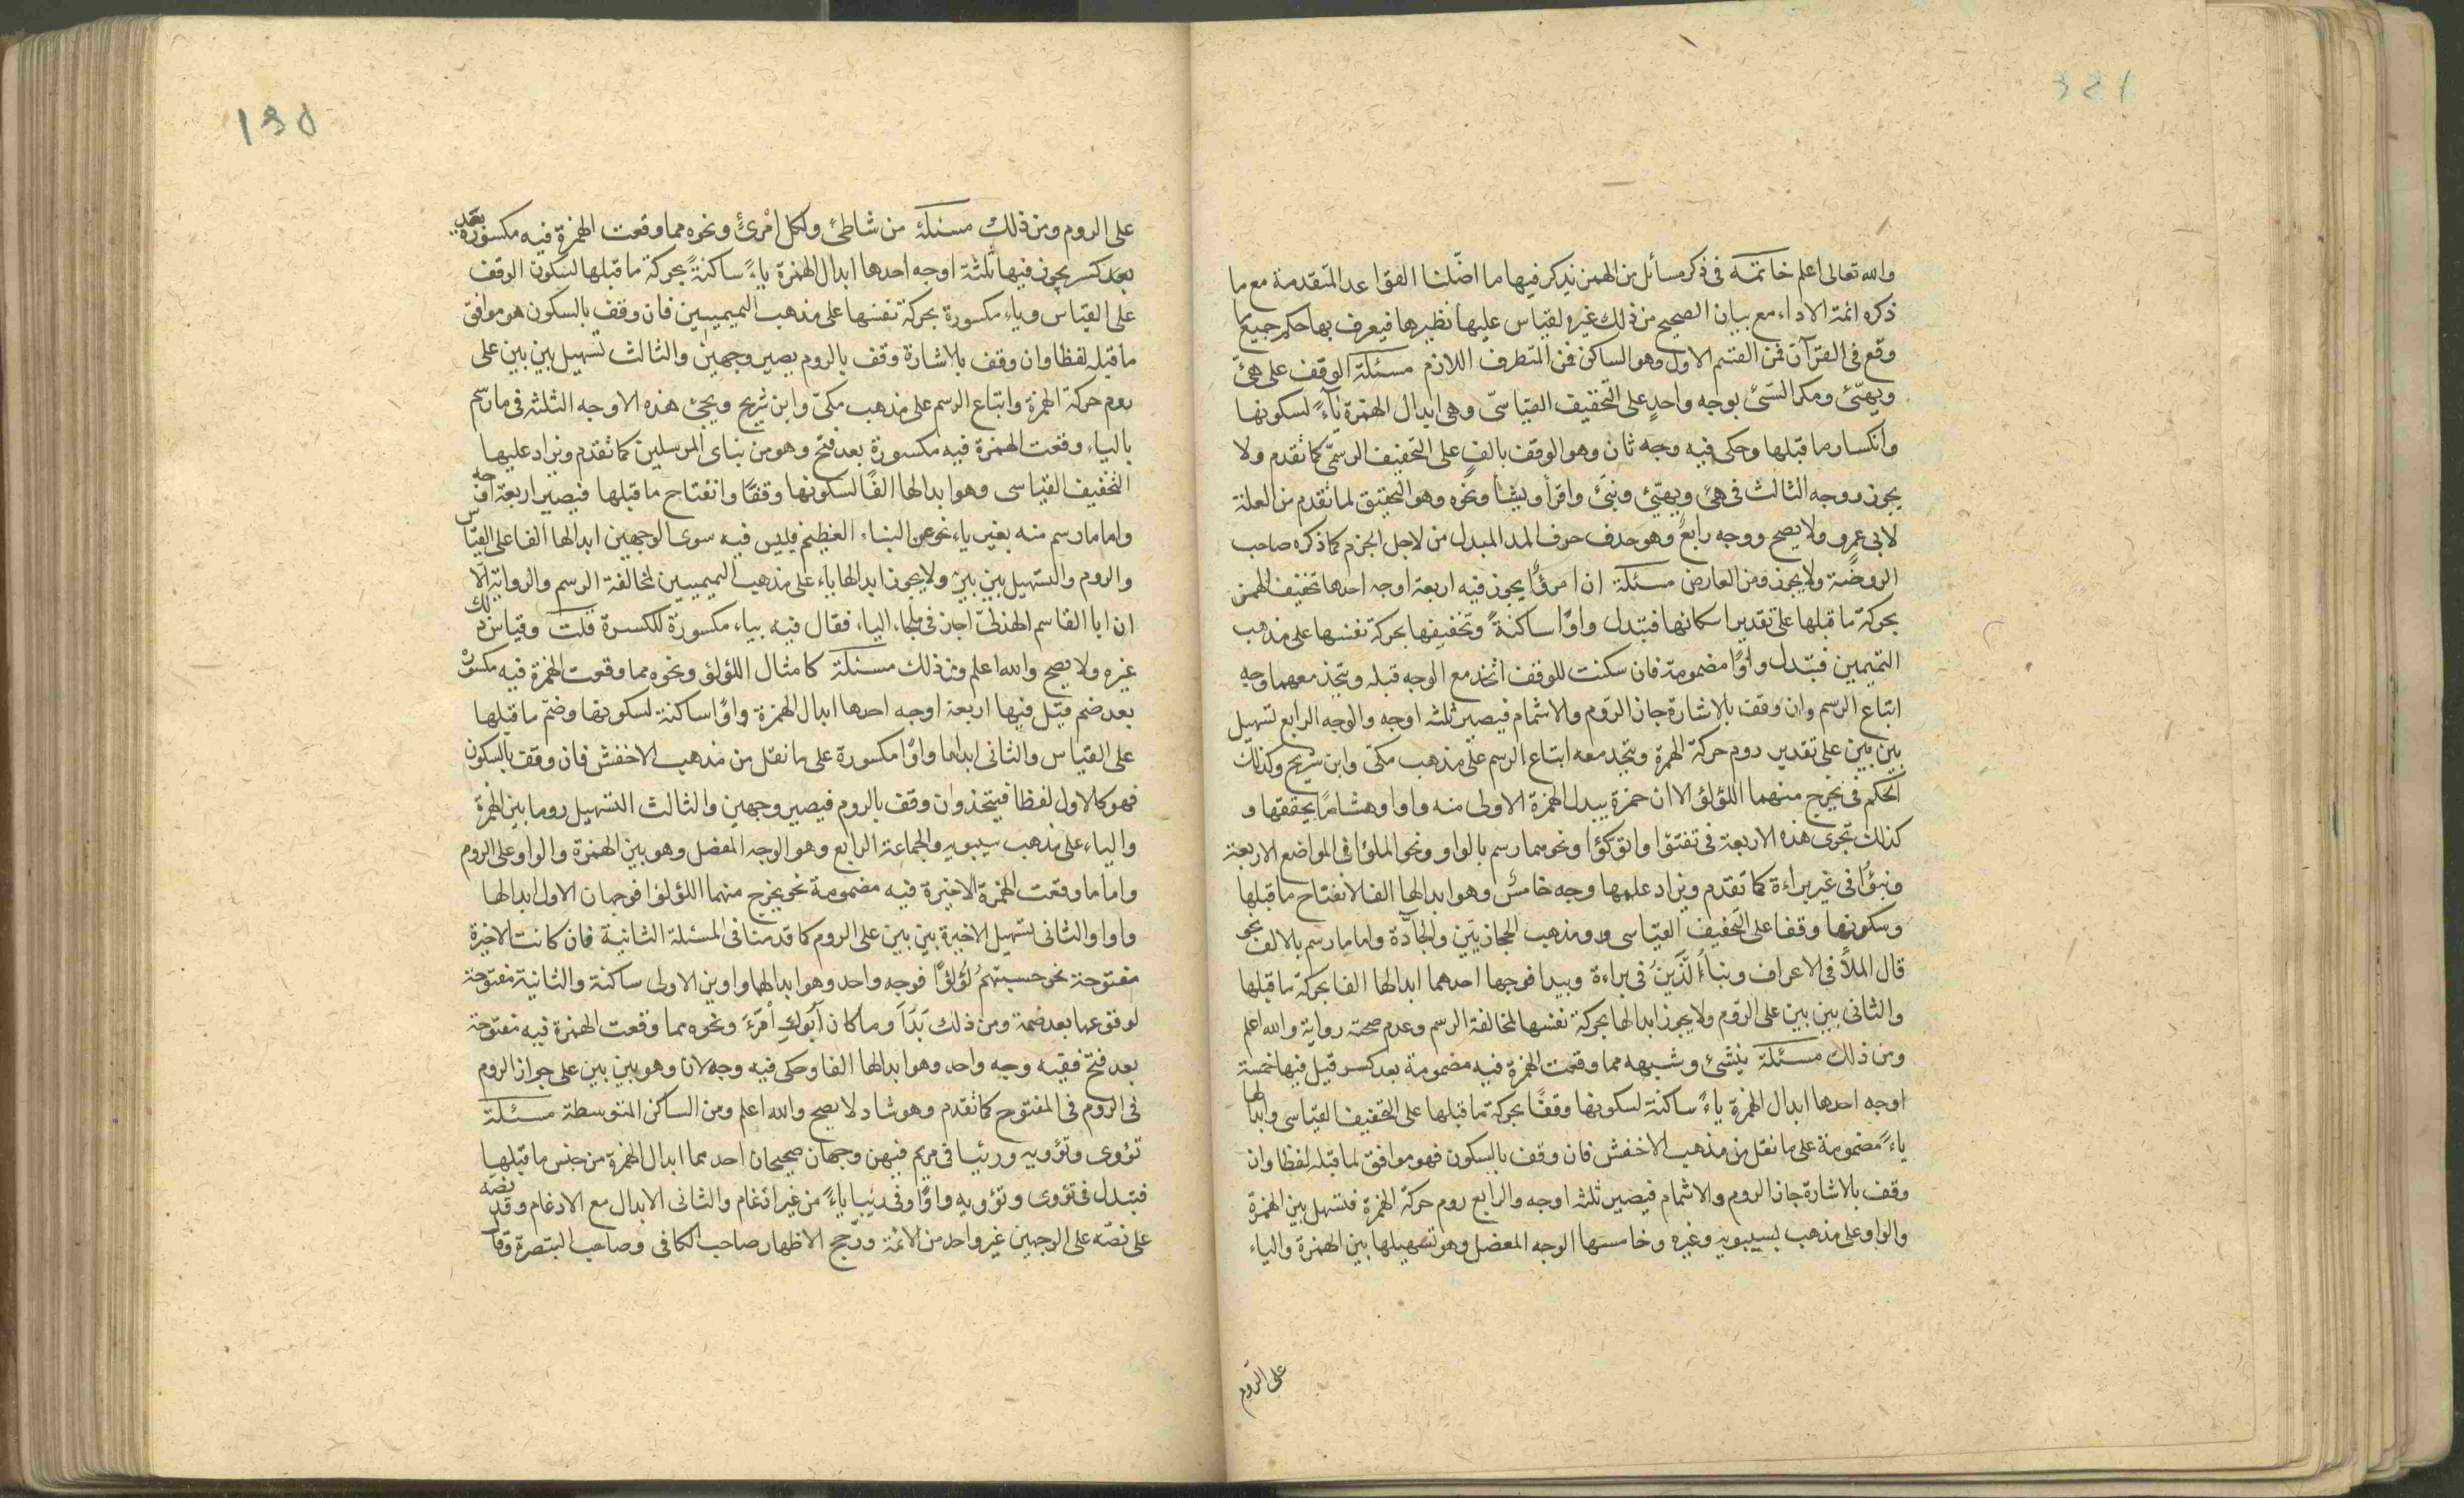 والله تعالى اعلم خاتمة فى ذكر مسائل من الهمز نذكر فيها ما اصّلنا القواعد المتقدمة مع ما
ذكره ائمة الاداء مع بيان الصحيح من ذلك غيره لقياس عليها نظيرها فيعرف بها حكم جميع ما
وقع فى القرآن فمن القسم الاول وهو الساكن فمن المتطرف اللازم مسئلة الوقف على هيّئ
ويهيّئ ومكر السّيّئ بوجه واحدٍ على التّخفيف القياسىّ وهى ابدال الهمزة ياءً لسكونها
وانكسار ما قبلها وحكى فيه وجه ثان وهو الوقف بالفٍ على التخفيف الرسمىّ كما تقدم ولا
يجوز ووجه الثالث فى هيّئ ويهيّئ ونبّئ واقرأ ويشأ ونحوه وهو التحقيق لما تقدم من العلة
لابى عمرو ولا يصح ووجه رابعٌ وهو حذف حرف المد المبدل من لاجل الجزم كما ذكره صاحب
الروضة ولا يجوز ومن العارض مسئلة ان امرؤٌا يجوز فيه اربعة اوجه احدها تخفيف الهمز
بحركة ما قبلها على تقدير اسكانها فتبدل واوًا ساكنةً وتخفيفها بحركة نفسها على مذهب
التميمين فتبدل واوًا مضمومة فان سكنت للوقف اتخذ مع الوجه قبله ويتخذ معهما وجه
اتباع الرسم وان وقف بالاشارة جاز الرّوم والاشمام فيصير ثلثه اوجه والوجه الرابع تسهيل
بين بين على تقدير روم حركة الهمزة ويتخد معه اتباع الرسم على مذهب مكىّ وابن شريح وكذلك
الحكم فى يخرج منهما اللؤلؤ الا ان حمزة يبدل الهمزة الاولى منه واوا وهشامًا يحققها و
كذلك تجرى هذه الاربعة فى تفتؤا واتوكؤا ونحو مما رسم بالواو ونحو الملؤا فى المواضع الاربعة
ونبؤا فى غير براءة كما تقدم ويزاد عليها وجه خامسٌ وهو ابدالها الفا لانفتاح ما قبلها
وسكونها وقفا على التخفيف القياسى و ومذهب الحجازيّين والجادّة واما ما رسم بالالف نحو
قال الملأ فى الاعراف ونباءُ الّذين فى براءة ويبدا فوجها احدهما ابدالها الفا بحركة ما قبلها
والثانى بين بين على الرّوم ولا يجوز ابدالها بحركة نفسها لمخالفة الرسم وعدم صحة رواية والله اعلم
ومن ذلك مسئلة ينشئ وشبهه مما وقعت الهمزة فيه مضمومة بعد كسر قيل فيها خمسة
اوجه احدها ابدال الهمزة ياءً ساكنة لسكونها وقفًا بحركة ما قبلها على التخفيف القياسى وابدالها
ياءً مضمومة على ما نقل من مذهب الاخفش فان وقف بالسكون فهو موافق لما قبله لفظا وان
وقف بالاشارة جاز الروم والاشمام فيصير ثلثه اوجه والرابع روم حركة الهمزة فتسهل بين الهمزة
والواو على مذهب لسيبويه وغيره وخامسها الوجه المعضل وهو تسهيلها بين الهمزة والياء
على الرّوم
على الروم ومن ذلك مسئلة من شاطئ ولكل امْرئٍ ونحوه مما وقعت الهمزة فيه مكسورة بعد
بعد كسر يجوز فيها ثلثة اوجه احدها ابدال الهمزة ياءً ساكنةً بحركة ما قبلها لسكون الوقف
على القياس وياء مكسورة بحركة نفسها على مذهب التميميين فان وقف بالسكون هو موافق
ما قبله لفظا وان وقف بالاشارة وقف بالروم يصير وجهين والثالث تسهيل بين بين على
روم حركة الهمزة واتباع الرسم على مذهب مكىّ وابن شريح ويجئ هذه الاوجه الثلثه فى ما رسم
بالياء وقعت الهمزة فيه مكسورة بعد فتح وهو من نباى المرسلين كما تقدم ويزاد عليها
التخفيف القياسى وهو ابدالها الفًا لسكونها وقفًا وانفتاح ما قبلها فيصير اربعة اوجه
واما ما رسم منه بغير ياء نحو عن النباء العظيم فليس فيه سوى الوجهين ابدالها الفا على القياس
والروم والتسهيل بين بين ولا يجوز ابدالها ياء على مذهب التميميين لمخالفة الرسم والرواية الّا
ان ابا القاسم الهذلىّ اجاز فى ملجاء الياء فقال فيه بياء مكسورة للكسرة قلت وقياس ذلك
غيره ولا يصح والله اعلم ومن ذلك مسئلة كامثال اللؤلؤ ونحوه مما وقعت الهمزة فيه مكسورة
بعد ضم قيّل فيها اربعة اوجه احدها ابدال الهمزة واوًا ساكنة لسكونها وضمّ ما قبلها
على القياس والثانى ابدالها واوًا مكسورة على ما نقل من مذهب الاخفش فان وقف بالسكون
فهو كالاول لفظا فيتخذ وان وقف بالروم فيصير وجهين والثالث التسهيل روما بين الهمزة
والياء على مذهب سيبويه والجماعة الرابع وهو الوجه المعضل وهو بين الهمزة والواو على الروم
واما ما وقعت الهمزة الاخيرة فيه مضمومة نحو يخرج منهما اللؤلؤا فوجهان الاول ابدالها
واوا والثانى تسهيل الاخيرة بين بين على الروم كما قدمنا فى المسئلة الثانية فان كانت الاخيرة
مفتوحة نحو حسبتهُم لُؤلؤًا فوجه واحد وهو ابدالهما واوين الاولى ساكنة والثانية مفتوحة
لوقوعها بعد ضمة ومن ذلك بَدَأَ وما كان اَبُوكِ امْرَءَ ونحوه مما وقعت الهمزة فيه مفتوحة
بعد فتح ففيه وجه واحد وهو ابدالها الفا وحكى فيه وجه لان وهو بين بين على جواز الروم
فى الروم فى المفتوح كما تقدم وهو شاد لا يصح والله اعلم ومن الساكن المتوسطة مسئلة
تؤوى وتؤويه ورئيا فى مريم فيهن وجهان صحيحان احدهما ابدال الهمزة من جنس ما قبلها
فتبدل فى تؤوى وتؤويه واوًا وفى رئيا ياءً من غير ادغام والثانى الابدال مع الادغام وقد نصّه
على نصّه على الوجهين غير واحد من الائمة ورجّح الاظهار صاحب الكافى وصاحب التبصرة وقا